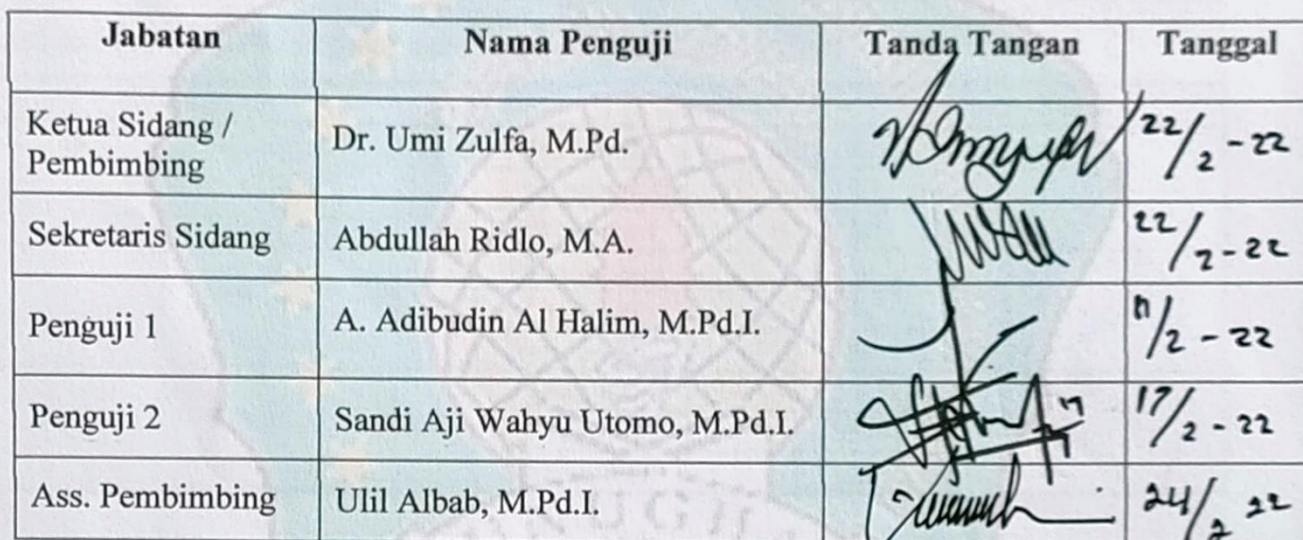 Jabatan Nama Penguji Tanda Tangan Tanggal
Ketua Sidang /
Pembimbing Dr. Umi Zulfa, M.Pd. 22/2 - 22
Sekretaris Sidang Abdullah Ridlo, M.A. 22/2 - 22
Penguji 1 A. Adibudin Al Halim, M.Pd.I. /2 - 22
Penguji 2 Sandi Aji Wahyu Utomo, M.Pd.I. 17/2 - 22
Ass. Pembimbing Ulil Albab, M.Pd.I. 24/2 22